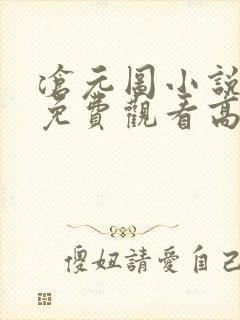 滄元圖小說
免費觀看高
傻妞請愛自己